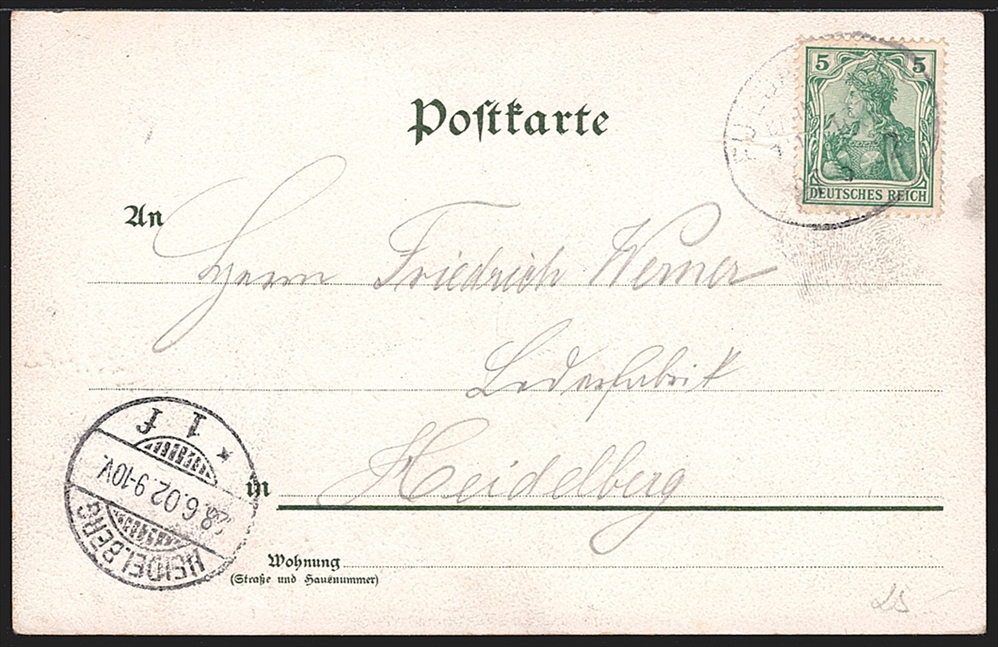 5 5
DEUTSCHES REICH
Postkarte
An
Herrn Friedrich Werner
Lederfabrik
in Heidelberg
Wohnung
(Straße und Hausnummer)
HEIDELBERG
6.02 9-10V.
* 1 f